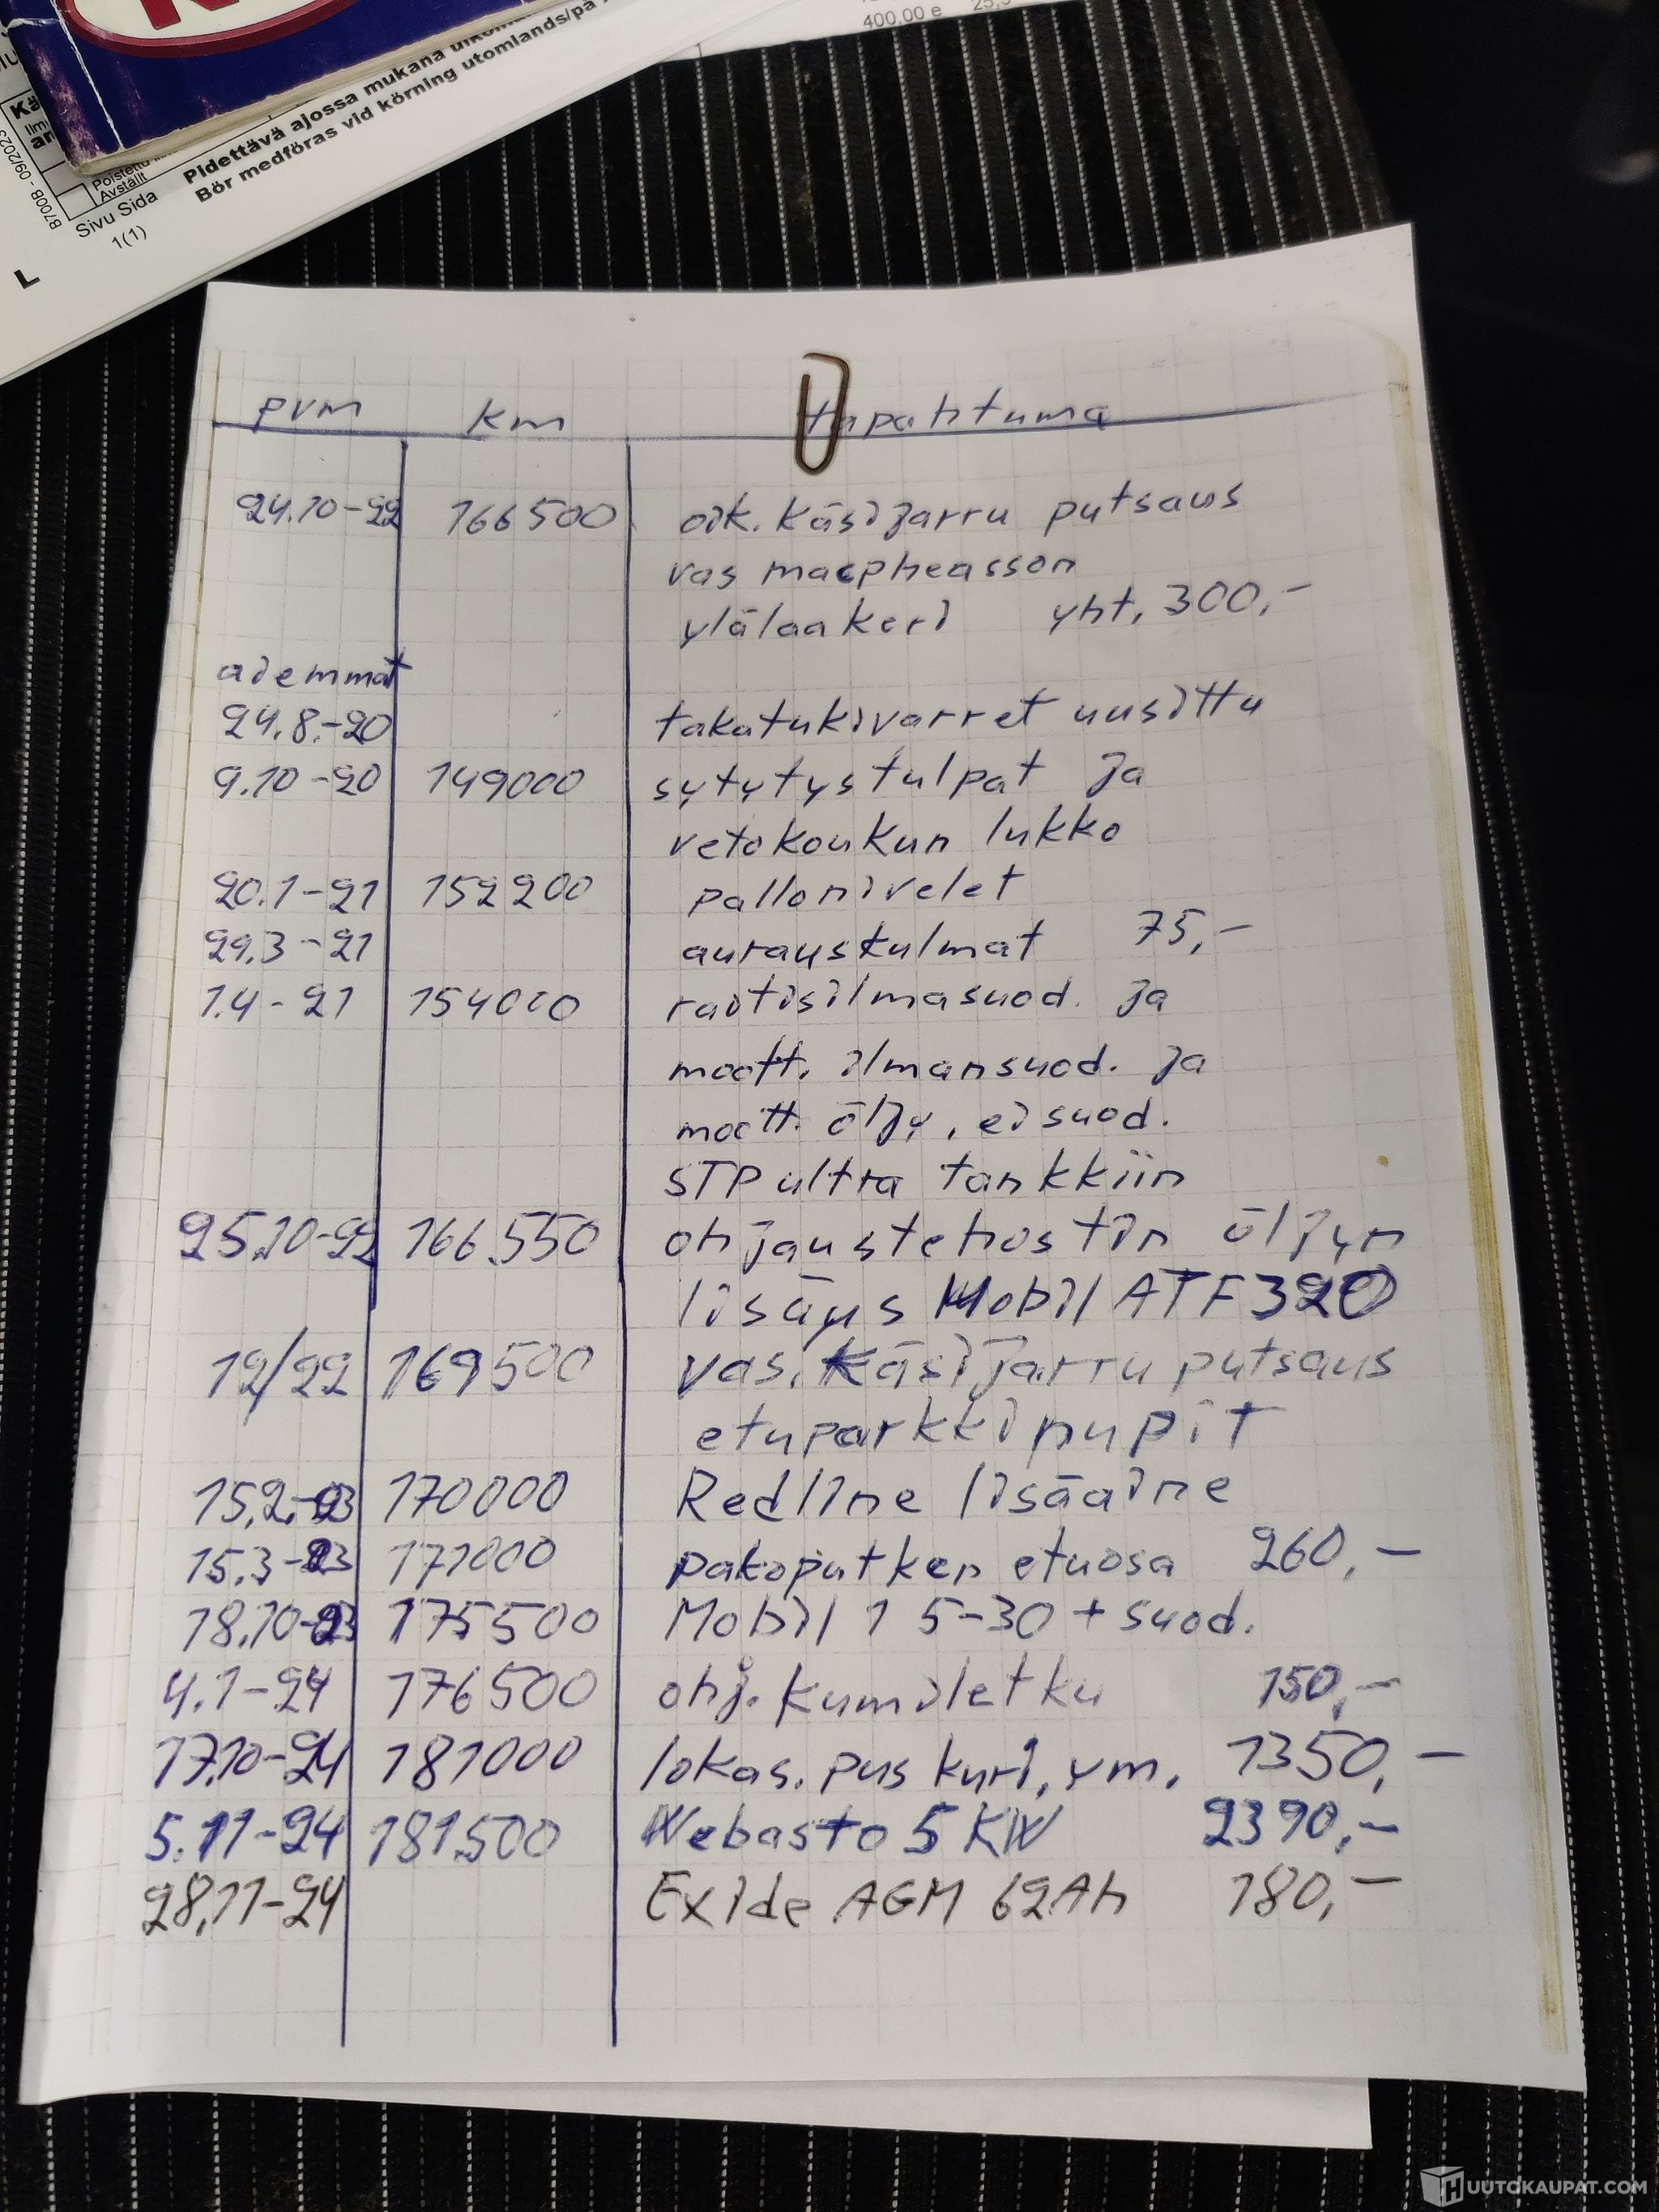 400,00 e
Pidettävä ajossa mukana
Bör medföras vid körning utomlands/på
Poistettu
Avställt
B700B - 09/202
Sivu Sida
1(1)
L
pvm km tapahtuma
24.10-22 166500 oik. käsijarru putsaus
vas macpheasson
ylälaakeri yht. 300,-
aiemmat
24.8.-20 takatukivarret uusittu
9.10-20 149000 sytytystulpat ja
vetokoukun lukko
20.1-21 152200 pallonivelet
29.3-21 aurauskulmat 75,-
1.4-21 154000 raitisilmasuod. ja
moott. ilmansuod. ja
moott. öljy, ei suod.
STP ultra tankkiin
25.10-22 166.550 ohjaustehostin öljyn
lisäys Mobil ATF 320
12/22 169500 vas. käsijarru putsaus
etuparkki nupit
15.2.-23 170000 Redline lisäaine
15.3-23 171000 pakoputken etuosa 260,-
18.10-23 175500 Mobil 1 5-30 + suod.
4.1-24 176500 ohj. kumiletku 150,-
17.10-24 181000 lokas. puskuri, ym. 1350,-
5.11-24 181.500 Webasto 5 KW 2390,-
28.11-24 Exide AGM 62Ah 180,-
HUUTOKAUPAT.COM